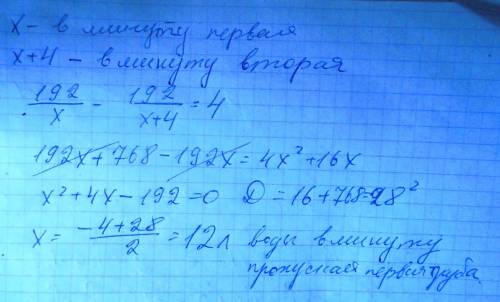 x – в минуту первая
x+4 – в минуту вторая
192/x - 192/(x+4) = 4
192x + 768 - 192x = 4x² + 16x
x² + 4x - 192 = 0   D = 16 + 768 = 28²
x = (-4+28)/2 = 12л воды в минуту
пропускает первая труба